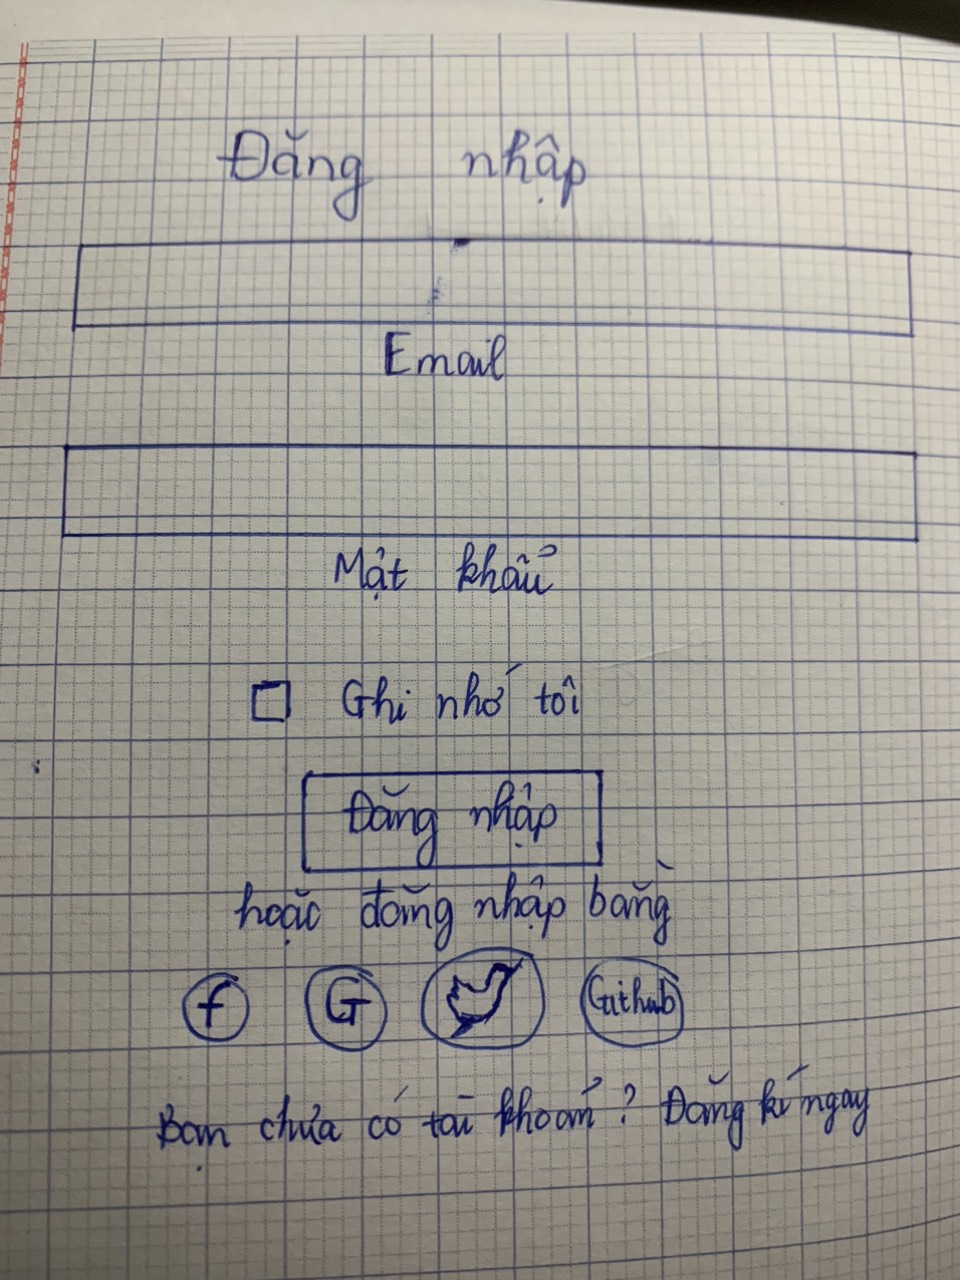 Đăng nhập
Email
Mật khẩu
Ghi nhớ tôi
Đăng nhập
hoặc đăng nhập bằng
f G Github
Bạn chưa có tài khoản? Đăng kí ngay